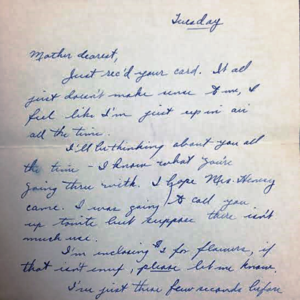 Tuesday
Mother dearest,
Just rec'd your card. It all
just doesn't make sense to me, I
feel like I'm just up in air
all the time.
I'll be thinking about you all
the time - I know what you're
going thru with. I hope Mrs. Henry
came. I was going to call you
up tonite but suppose there isn't
much use.
I'm inclosing $ for flowers, if
that isn't enuf, please let me know.
I'm just three few seconds before